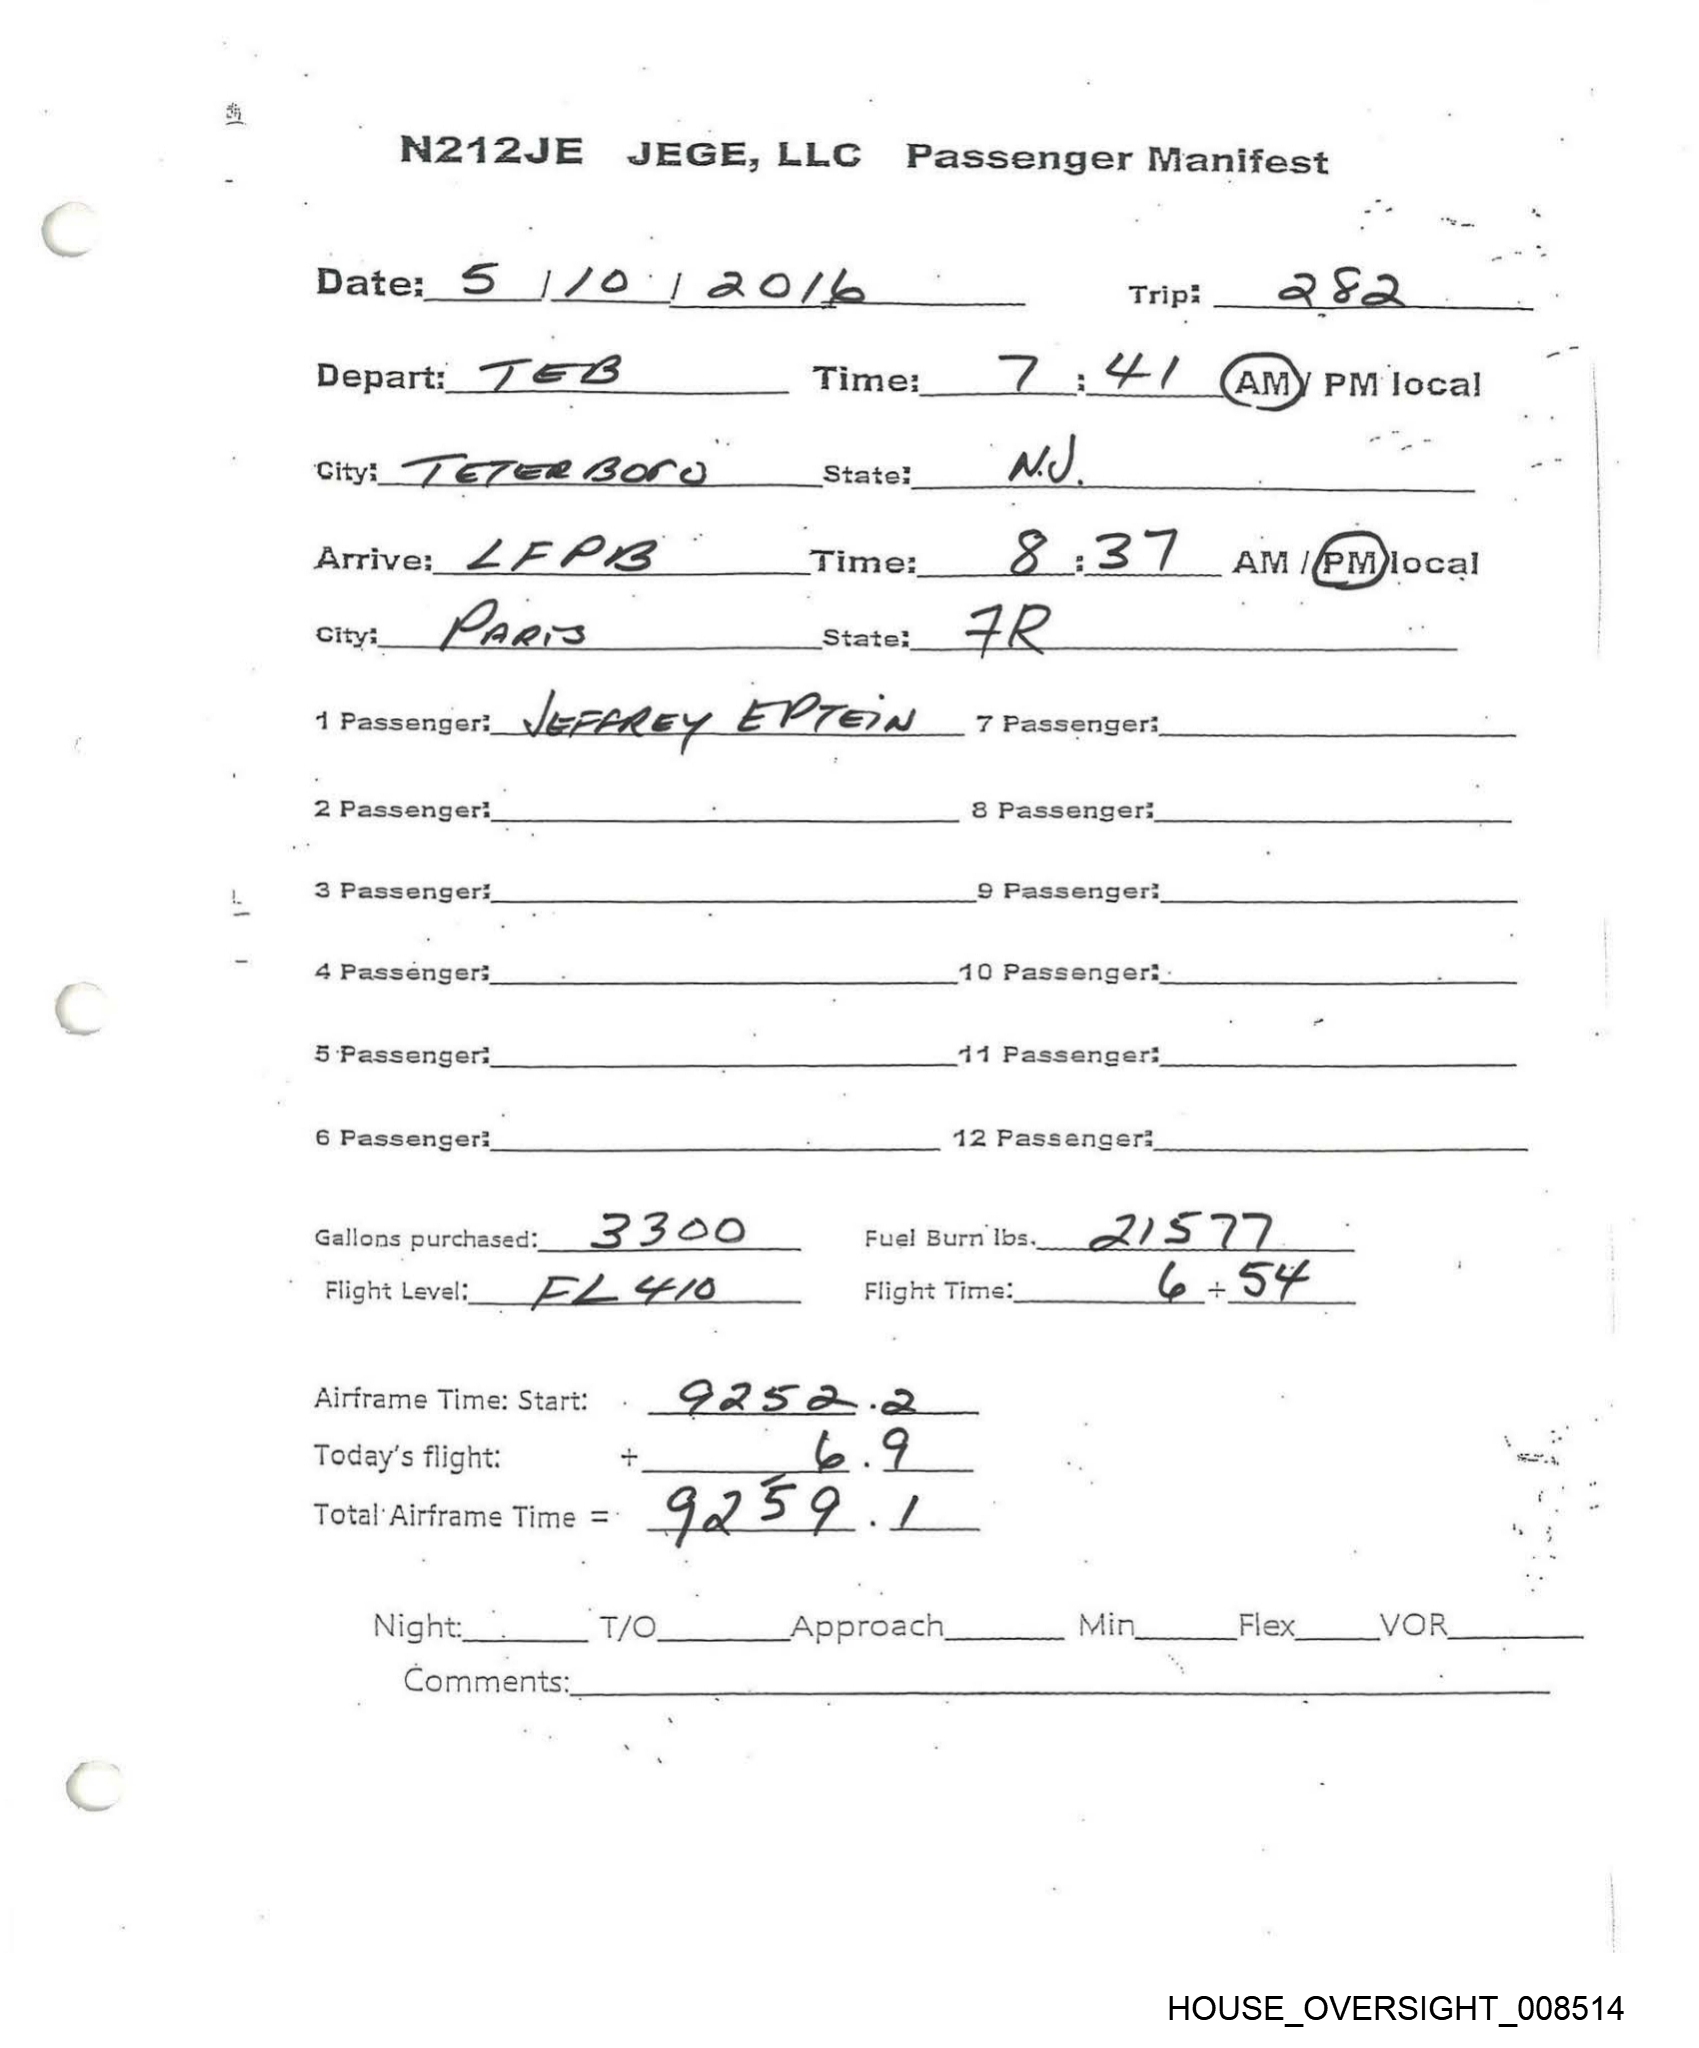 N212JE JEGE, LLC Passenger Manifest
Date: 5 / 10 / 2016 Trip: 282
Depart: TEB Time: 7 : 41 AM / PM local
City: TETERBORO State: N.J.
Arrive: LFPB Time: 8 : 37 AM / PM local
City: PARIS State: FR
1 Passenger: JEFFREY EPTEIN 7 Passenger:
2 Passenger: 8 Passenger:
3 Passenger: 9 Passenger:
4 Passenger: 10 Passenger:
5 Passenger: 11 Passenger:
6 Passenger: 12 Passenger:
Gallons purchased: 3300 Fuel Burn lbs. 21577
Flight Level: FL 410 Flight Time: 6 + 54
Airframe Time: Start: 9252.2
Today's flight: + 6.9
Total Airframe Time = 9259.1
Night: T/O Approach Min Flex VOR
Comments:
HOUSE_OVERSIGHT_008514